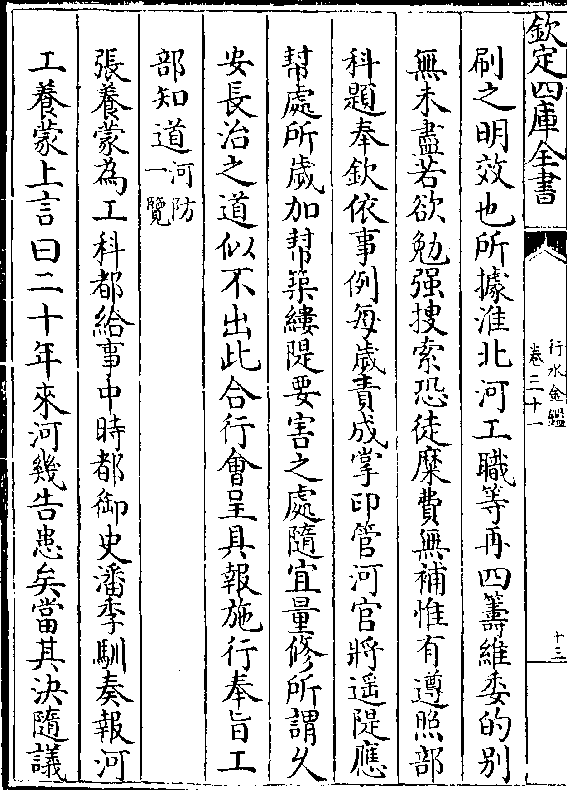 欽定四庫全書
行水金鑑
卷三十一
十三
刷之明效也所據淮北河工職等再四籌維委的别
無未盡若欲勉强搜索恐徒糜費無補惟有遵照部
科題奉欽依事例每歲責成掌印管河官將遥隄應
幇處所歲加幇築縷隄要害之處隨宜量修所謂久
安長治之道似不出此合行會呈具報施行奉旨工
部知道河防一覽
張養蒙為工科都給事中時都御史潘季馴奏報河
工養蒙上言曰二十年來河幾告患矣當其決隨議